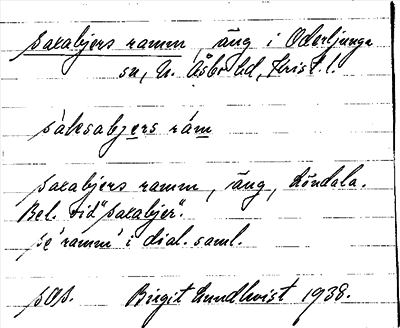 saxabjers ramm, äng i Oderljunga
sn, N. Åsbo hd, Krist. l.
sàksabjers rám
saxabjers ramm, äng, Röndala.
Bel. vid "saxabjer".
se 'ramm' i dial. saml.
Birgit Lundkvist 1938.